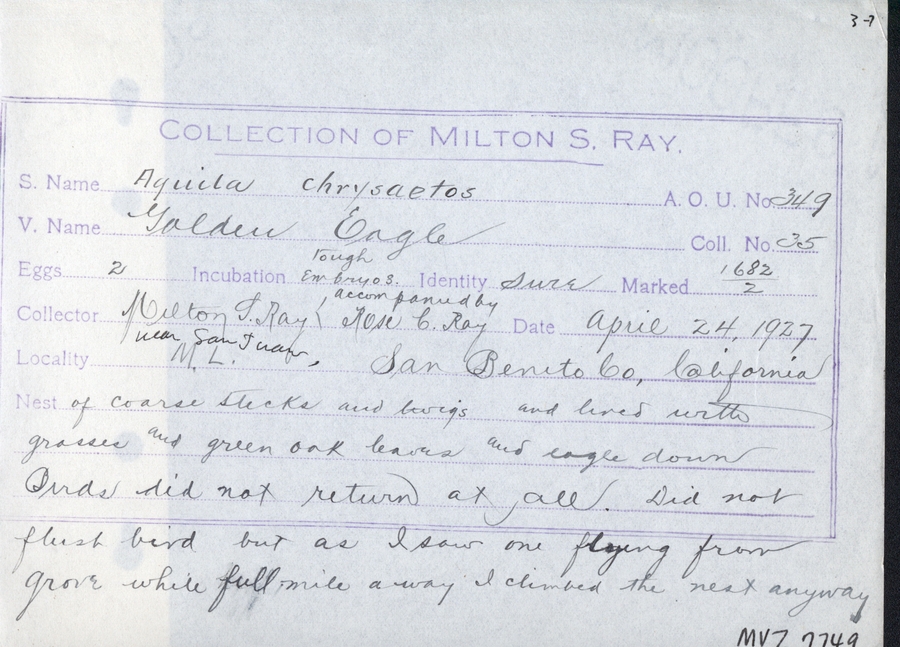 3-7
COLLECTION OF MILTON S. RAY.
S. Name Aquila chrysaetos A. O. U. No. 349
V. Name Golden Eagle Coll. No. 35
Tough
Eggs 2 Incubation Embryos. Identity Sure Marked 1682/2
, accompanied by
Collector Milton S. Ray Rose C. Ray Date April 24, 1927
near San Juan,
Locality M. L. San Benito Co, California
Nest of coarse sticks and twigs and lined with
grasses and green oak leaves and eagle down
Birds did not return at all. Did not
flush bird but as I saw one flying from
grove while full mile away I climbed the nest anyway
MVZ 7749